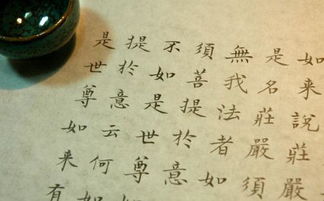 如来說莊嚴
是名莊嚴須
無我法者如
須菩提於意
不如是世尊如
提於意云何如
是世尊如来有